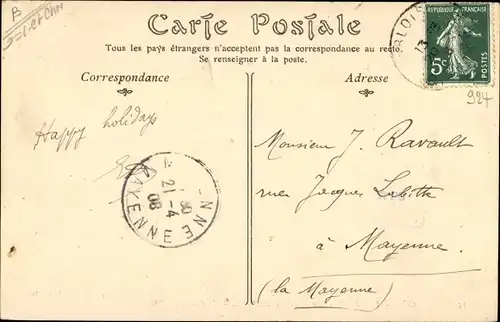 B
Carte Postale
Tous les pays étrangers n'acceptent pas la correspondance au recto.
Se renseigner à la poste.
Correspondance
Adresse
REPUBLIQUE FRANÇAISE
5c
POSTES
13
924
Happy holidays
Monsieur J. Ravault
rue Jacques Labitte
à Mayenne
(la Mayenne)
MAYENNE
21-4
08